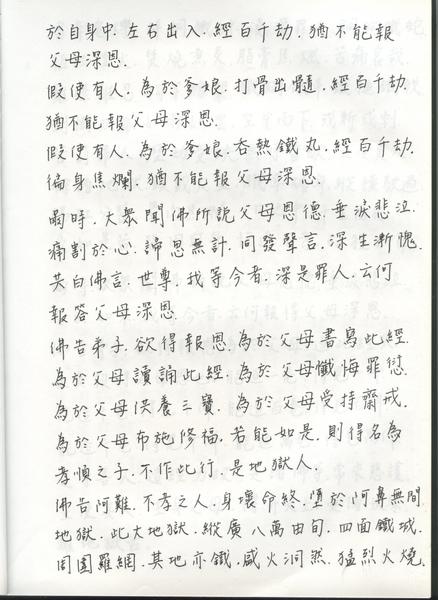 於自身中.左右出入.經百千劫.猶不能報
父母深恩.
假使有人.為於爹娘.打骨出髓.經百千劫.
猶不能報父母深恩.
假使有人.為於爹娘.吞熱鐵丸.經百千劫.
徧身焦爛.猶不能報父母深恩.
爾時.大眾聞佛所說父母恩德.垂淚悲泣.
痛割於心.諦思無計.同發聲言.深生漸愧.
共白佛言.世尊.我等今者.深是罪人.云何
報答父母深恩.
佛告弟子.欲得報恩.為於父母書寫此經.
為於父母讀誦此經.為於父母懺悔罪愆.
為於父母供養三寶.為於父母受持齋戒.
為於父母布施修福.若能如是.則得名為
孝順之子.不作此行.是地獄人.
佛告阿難.不孝之人.身壞命終.墮於阿鼻無間
地獄.此大地獄.縱廣八萬由旬.四面鐵城.
周圍羅網.其地亦鐵.盛火洞然.猛烈火燒.